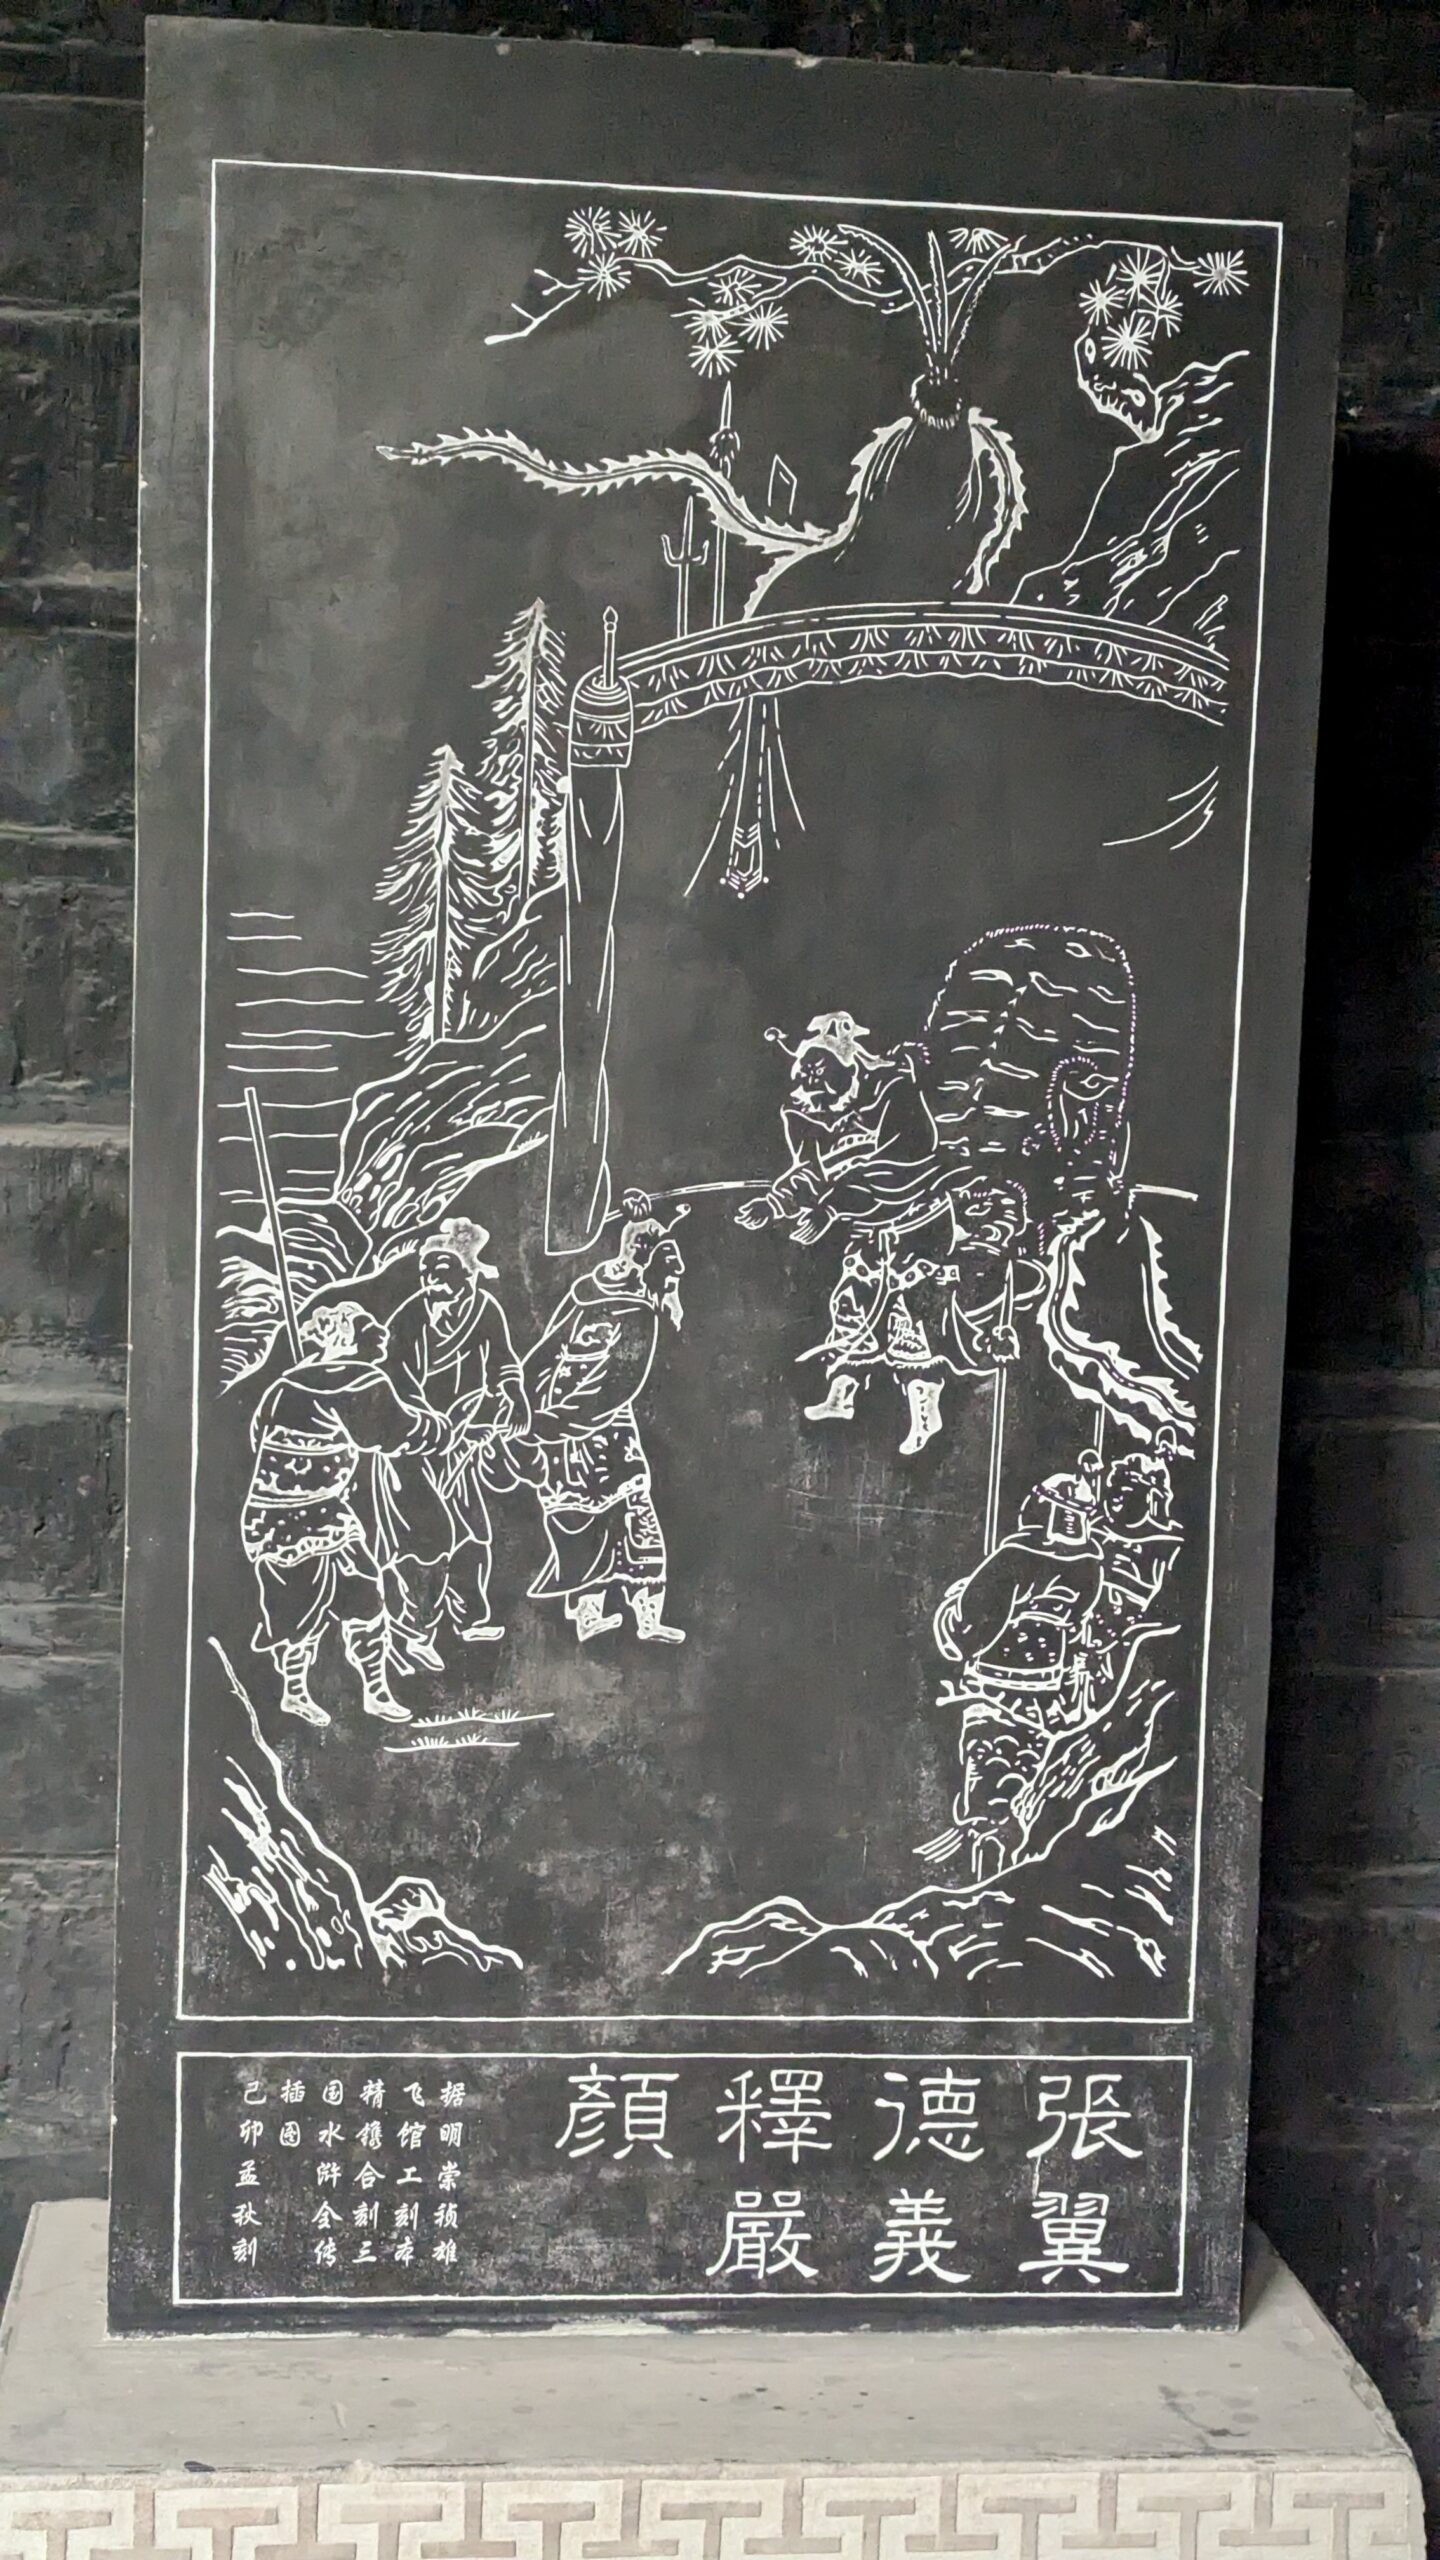 張翼
德義
釋嚴
顔
据明崇祯雄
飞馆工刻本
精镌合刻三
国水浒全传
插图
己卯孟秋刻